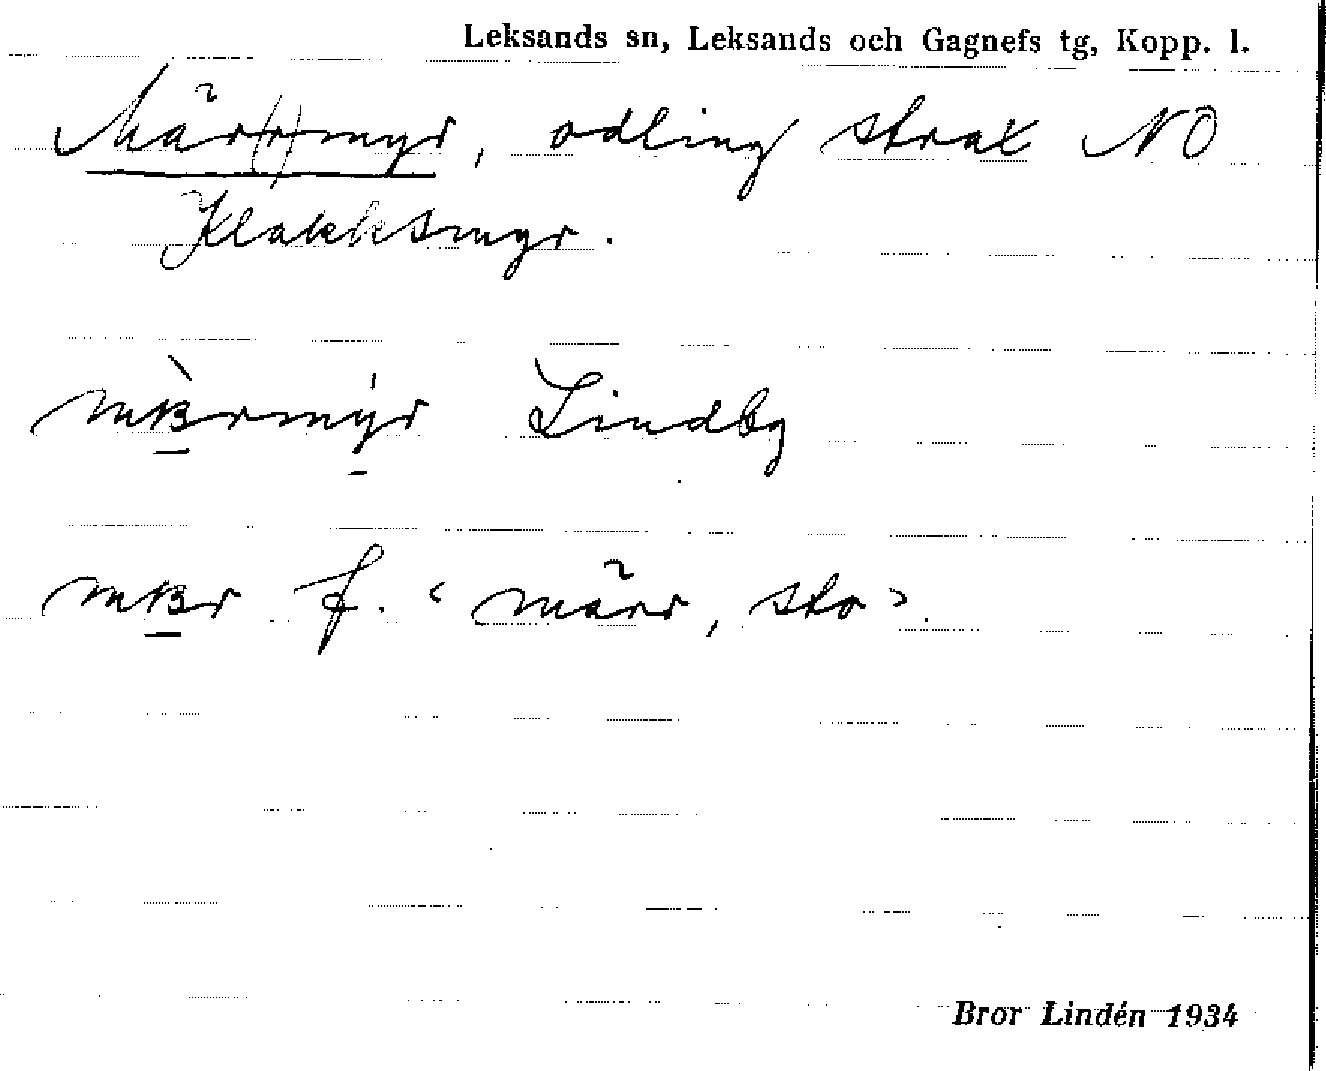 Leksands sn, Leksands och Gagnefs tg, Kopp. l.
Mär(r)myr, odling strax NO
Klakksmyr.
mB̀rmýr Lindby
mBr f. ‹ märr, sto ›.
Bror Lindén 1934